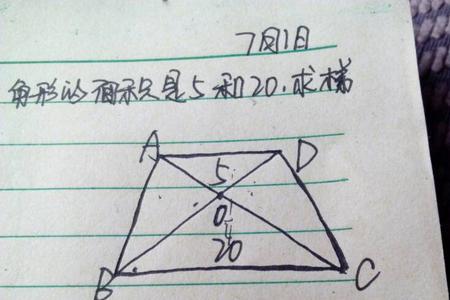 7月1日
角形的面积是5和20.求梯
A
D
5
O
20
B
C